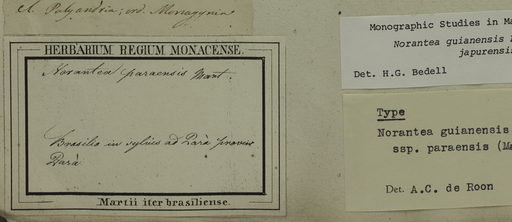 Cl. Polyandria; ord. Monogynia
HERBARIUM REGIUM MONACENSE.
Norantea paraensis Mart:
Brasilia in sylvis ad Parà provinc
Parà
Martii iter brasiliense.
Monographic Studies in Ma
Norantea guianensis
japurensis
Det. H.G. Bedell
Type
Norantea guianensis
ssp. paraensis (Ma
Det. A.C. de Roon